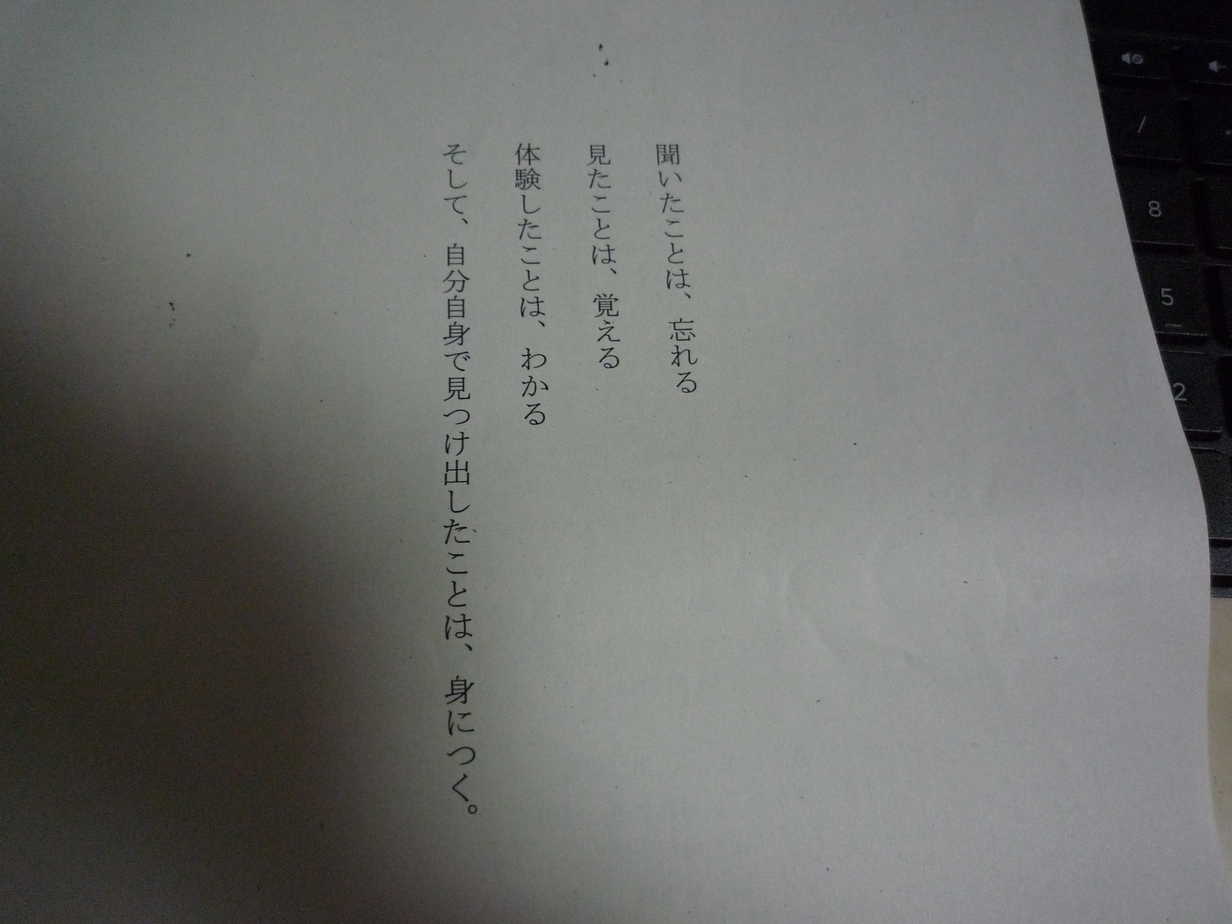 聞いたことは、忘れる
見たことは、覚える
体験したことは、わかる
そして、自分自身で見つけ出したことは、身につく。
/
8
5
2